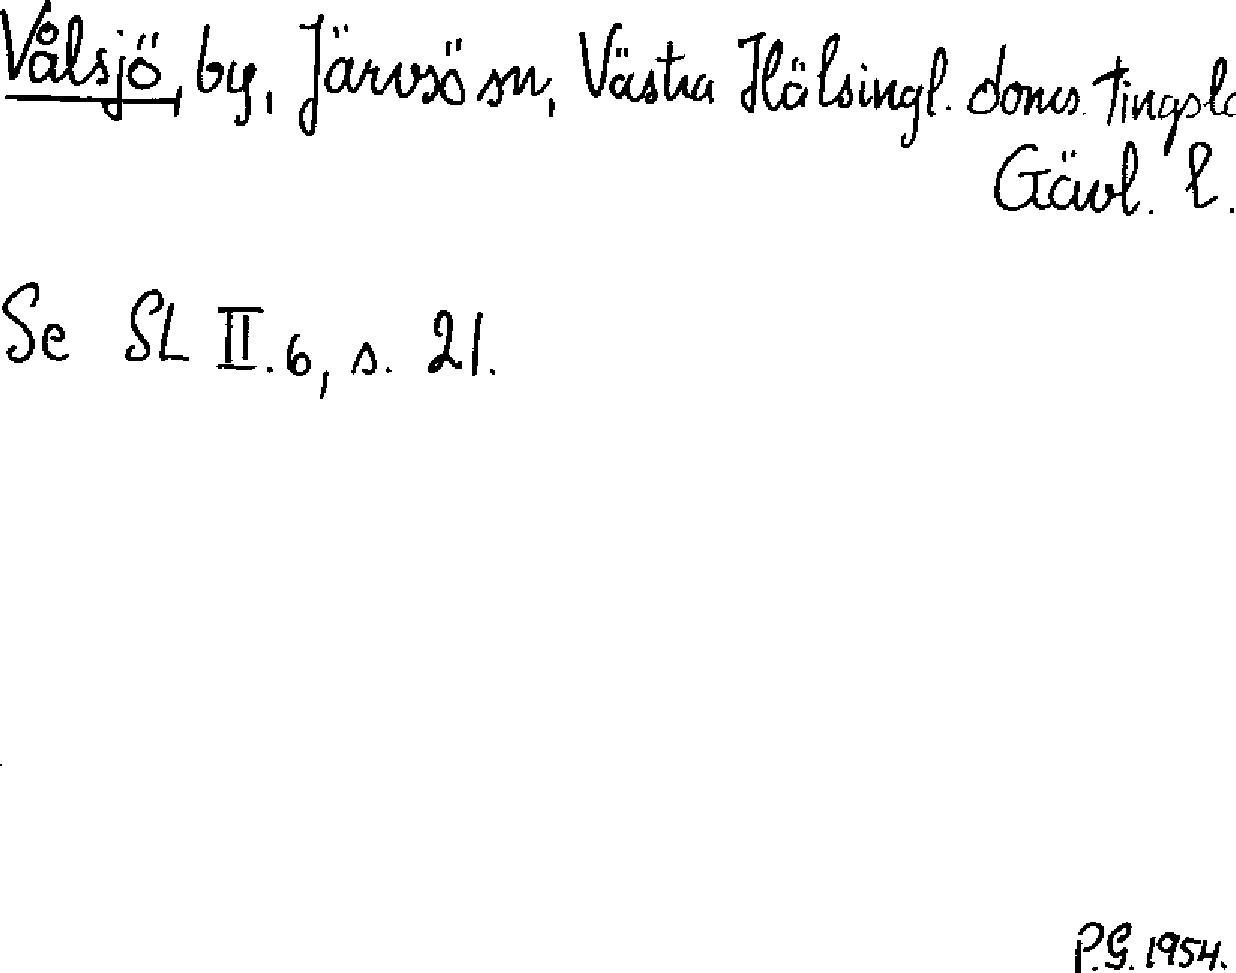 Vålsjö, by, Järvsö sn, Västra Hälsingl. doms. tingsl
Gävl. l.
Se SL II.6, s. 21.
P.G. 1954.